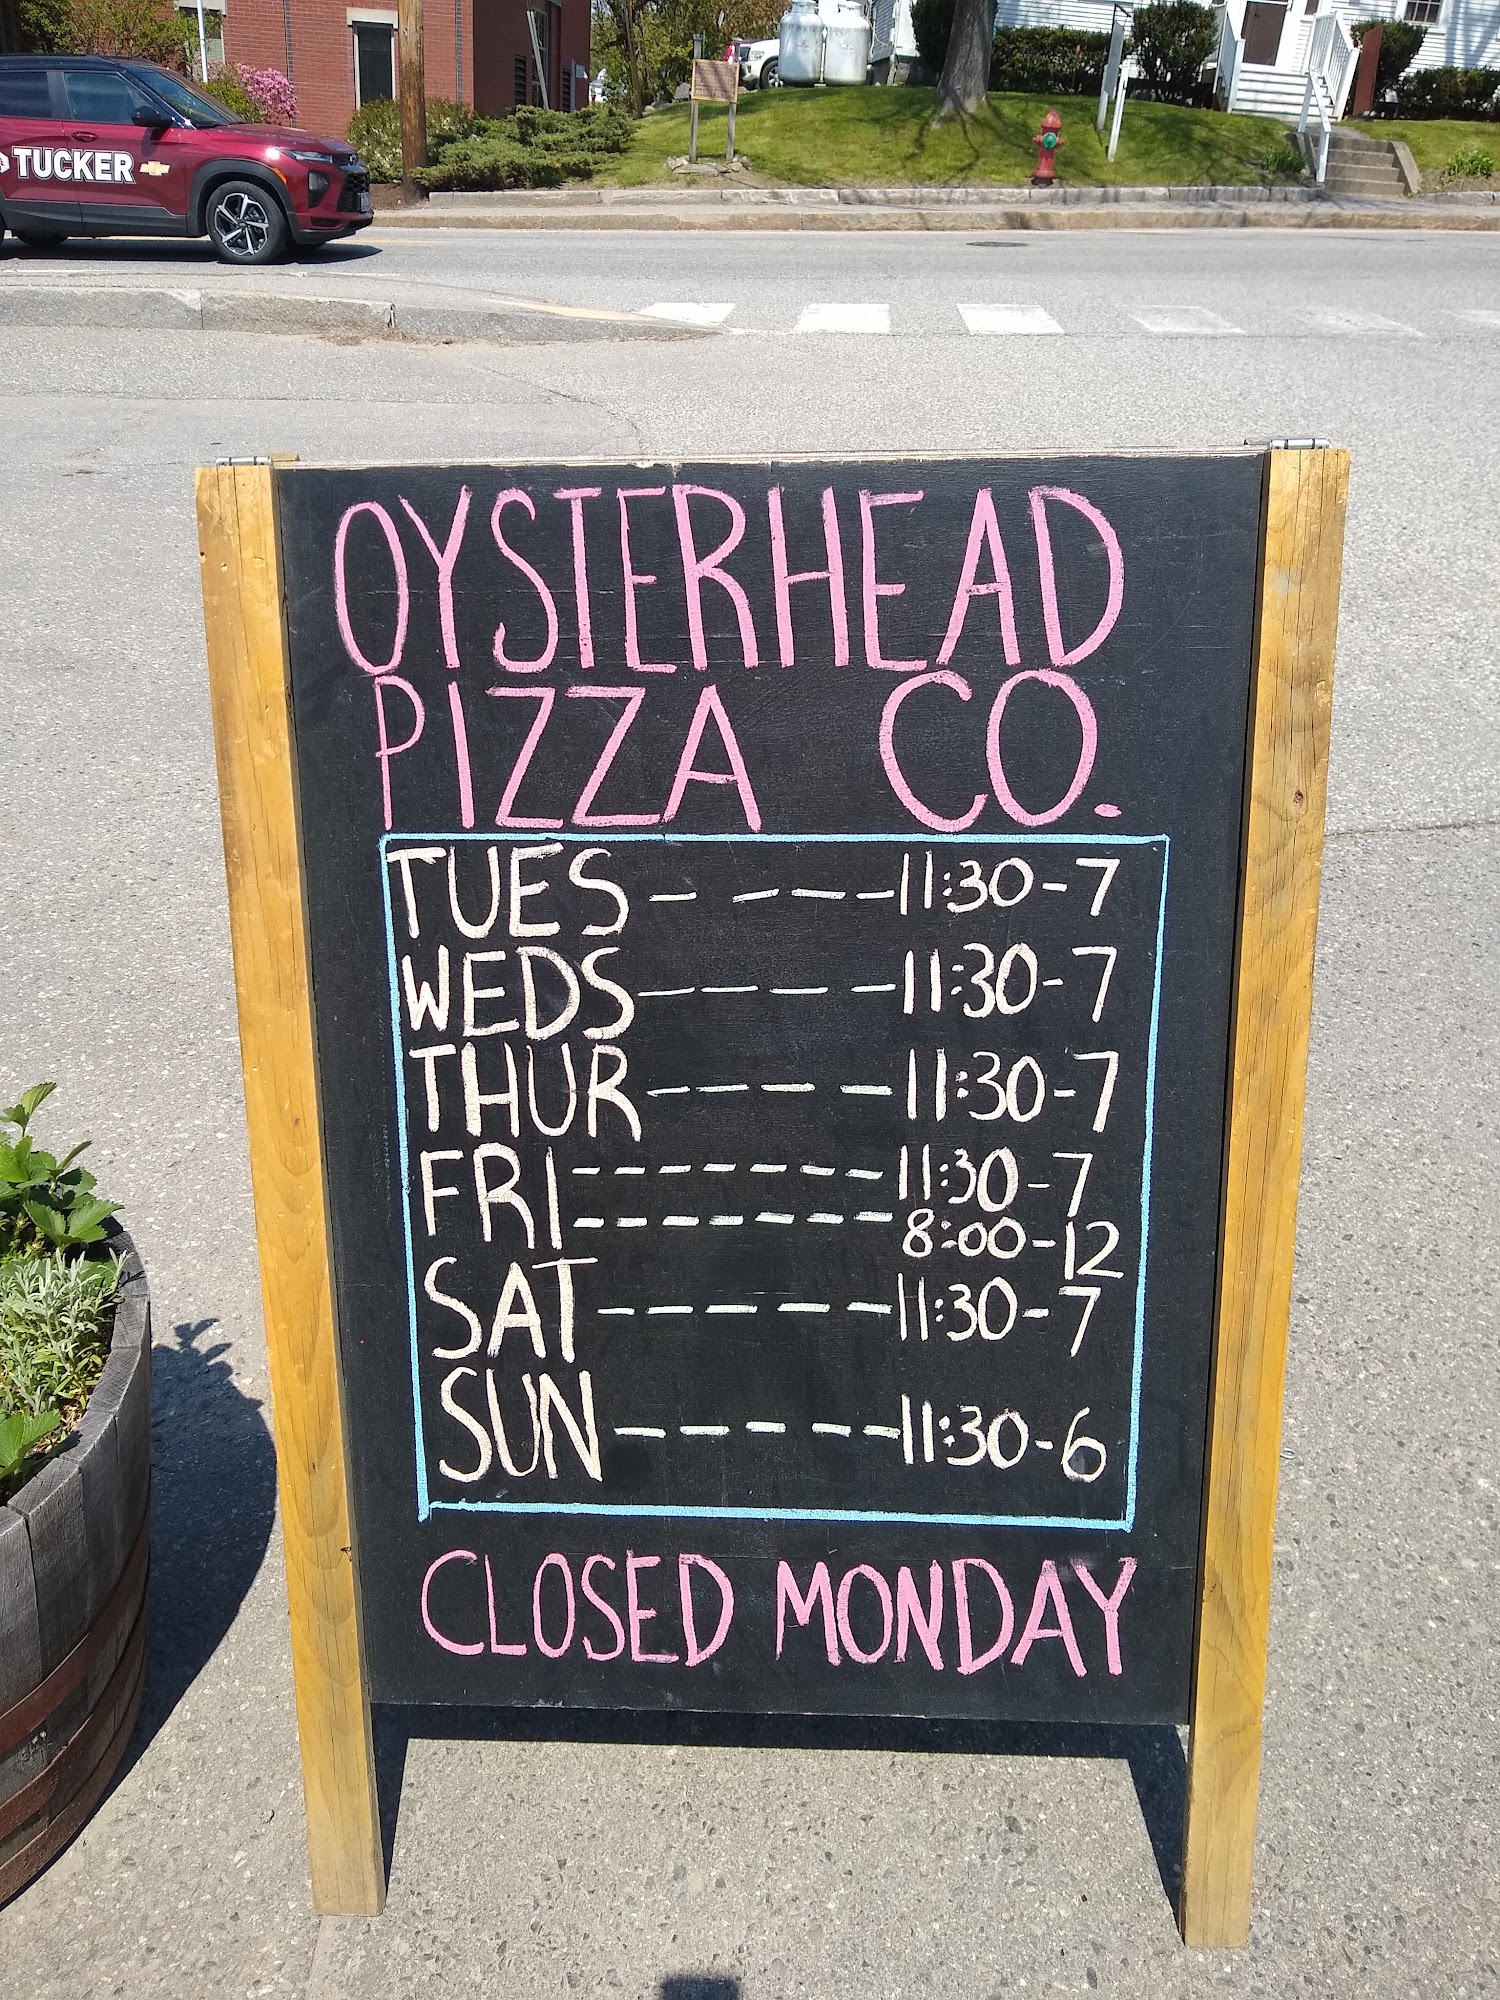 TUCKER
OYSTERHEAD
PIZZA CO.
TUES - - - - 11:30-7
WEDS - - - - 11:30-7
THUR - - - - 11:30-7
FRI - - - - - - - 11:30-7
- - - - - - - 8:00-12
SAT - - - - - 11:30-7
SUN - - - - - 11:30-6
CLOSED MONDAY